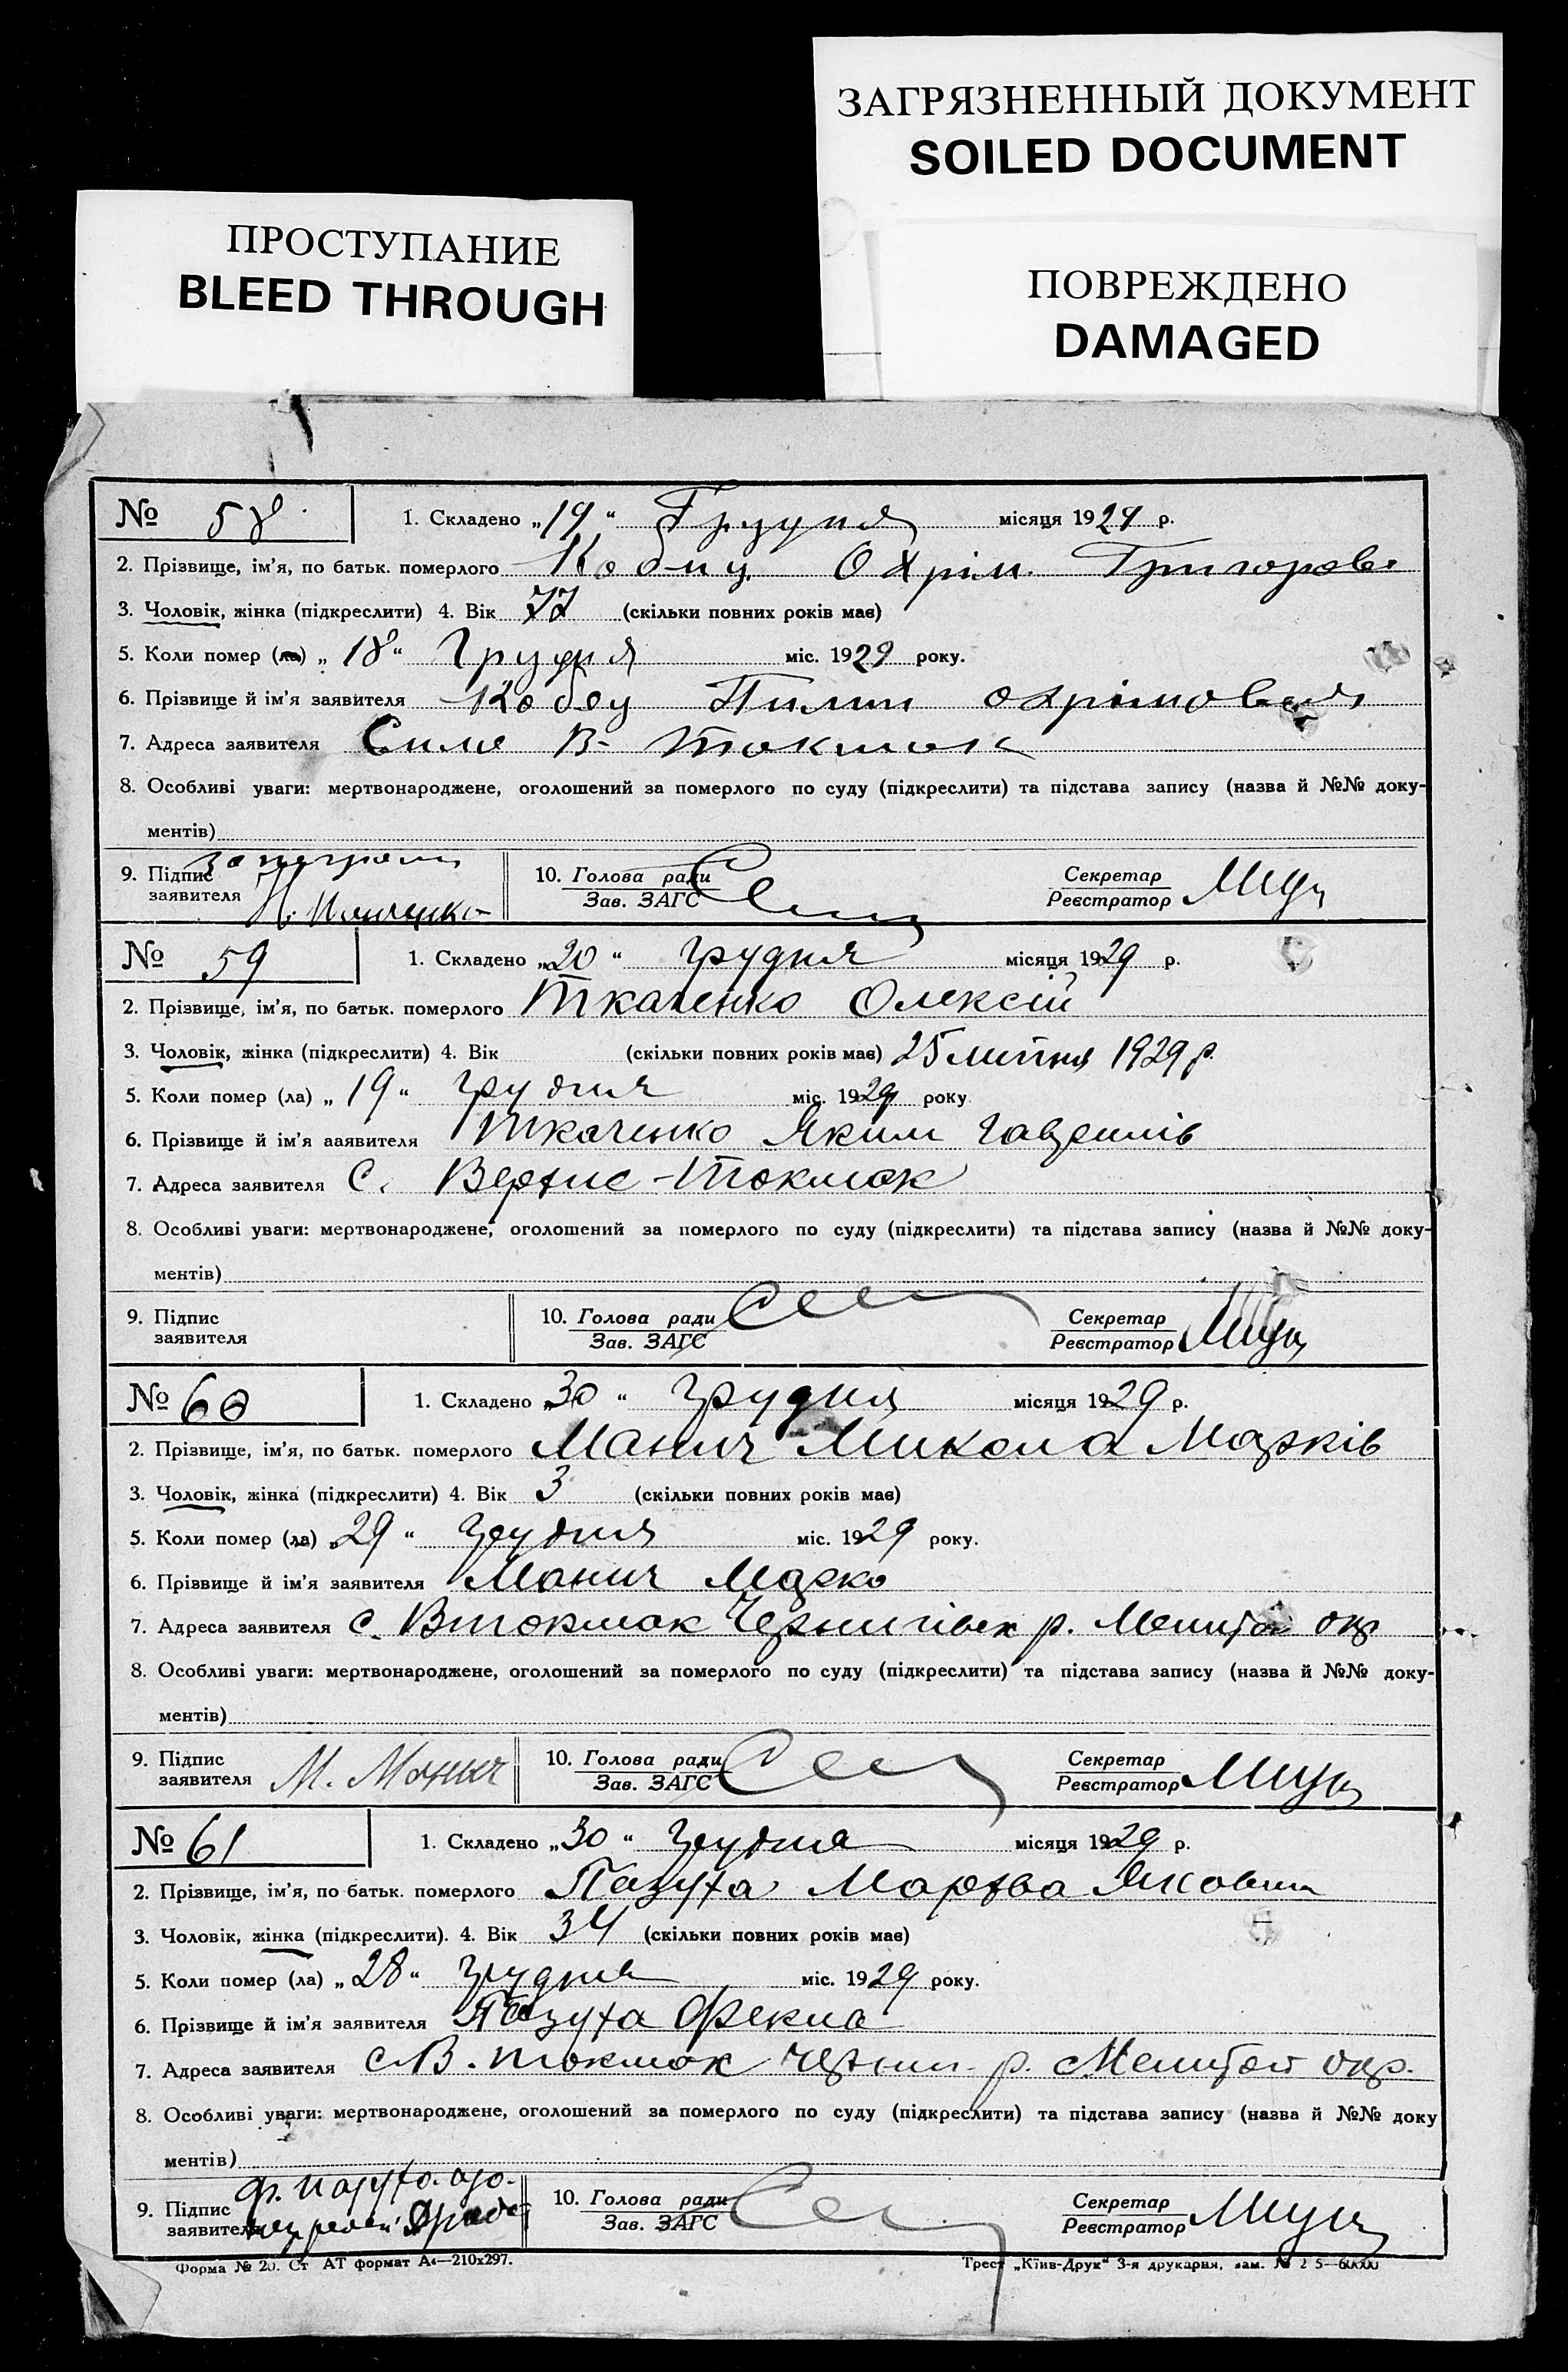 ЗАГРЯЗНЕННЫЙ ДОКУМЕНТ
SOILED DOCUMENT
ПРОСТУПАНИЕ
BLEED THROUGH
ПОВРЕЖДЕНО
DAMAGED
№ 58 1. Складено „19“ Грудня місяця 1929 р.
2. Прізвище, ім'я, по батьк. померлого Охрім Григоров.
3. Чоловік, жінка (підкреслити) 4. Вік 77 (скільки повних років має)
5. Коли помер (ла) „18“ Грудня міс. 1929 року.
6. Прізвище й ім'я заявителя Пилип Охрімович
7. Адреса заявителя Село В- Токмак
8. Особливі уваги: мертвонароджене, оголошений за померлого по суду (підкреслити) та підстава запису (назва й №№ доку-
ментів)
9. Підпис заявителя
10. Голова ради Зав. ЗАГС
Секретар Реєстратор
№ 59 1. Складено „20“ грудня місяця 1929 р.
2. Прізвище, ім'я, по батьк. померлого Ткаченко Олексій
3. Чоловік, жінка (підкреслити) 4. Вік (скільки повних років має) 25 липня 1929 р.
5. Коли помер (ла) „19“ грудня міс. 1929 року
6. Прізвище й ім'я заявителя Ткаченко Яким Гаврилів
7. Адреса заявителя С. Верхнє-Токмак
8. Особливі уваги: мертвонароджене, оголошений за померлого по суду (підкреслити) та підстава запису (назва й №№ доку-
ментів)
9. Підпис заявителя
10. Голова ради Зав. ЗАГС
Секретар Реєстратор
№ 60 1. Складено „30“ грудня місяця 1929 р.
2. Прізвище, ім'я, по батьк. померлого Манич Микола Марків
3. Чоловік, жінка (підкреслити) 4. Вік 3 (скільки повних років має)
5. Коли помер (ла) „29“ грудня міс. 1929 року.
6. Прізвище й ім'я заявителя Манич Марко
7. Адреса заявителя с. Втокмак Чернигівск р. Мелитоп окр
8. Особливі уваги: мертвонароджене, оголошений за померлого по суду (підкреслити) та підстава запису (назва й №№ доку-
ментів)
9. Підпис заявителя М. Манич
10. Голова ради Зав. ЗАГС
Секретар Реєстратор
№ 61 1. Складено „30“ грудня місяця 1929 р.
2. Прізвище, ім'я, по батьк. померлого Пазуха Марфва Яковна
3. Чоловік, жінка (підкреслити). 4. Вік 34 (скільки повних років має)
5. Коли помер (ла) „28“ грудня міс. 1929 року.
6. Прізвище й ім'я заявителя Пазуха Фекла
7. Адреса заявителя с В. токмак Черниг. р. Мелитоп окр.
8. Особливі уваги: мертвонароджене, оголошений за померлого по суду (підкреслити) та підстава запису (назва й №№ доку
ментів)
9. Підпис заявителя Ф. Пазуха
10. Голова ради Зав. ЗАГС
Секретар Реєстратор
Форма № 20. Ст АТ формат А4—210х297.
Трест „Київ-Друк“ 3-я друкарня, зам. №